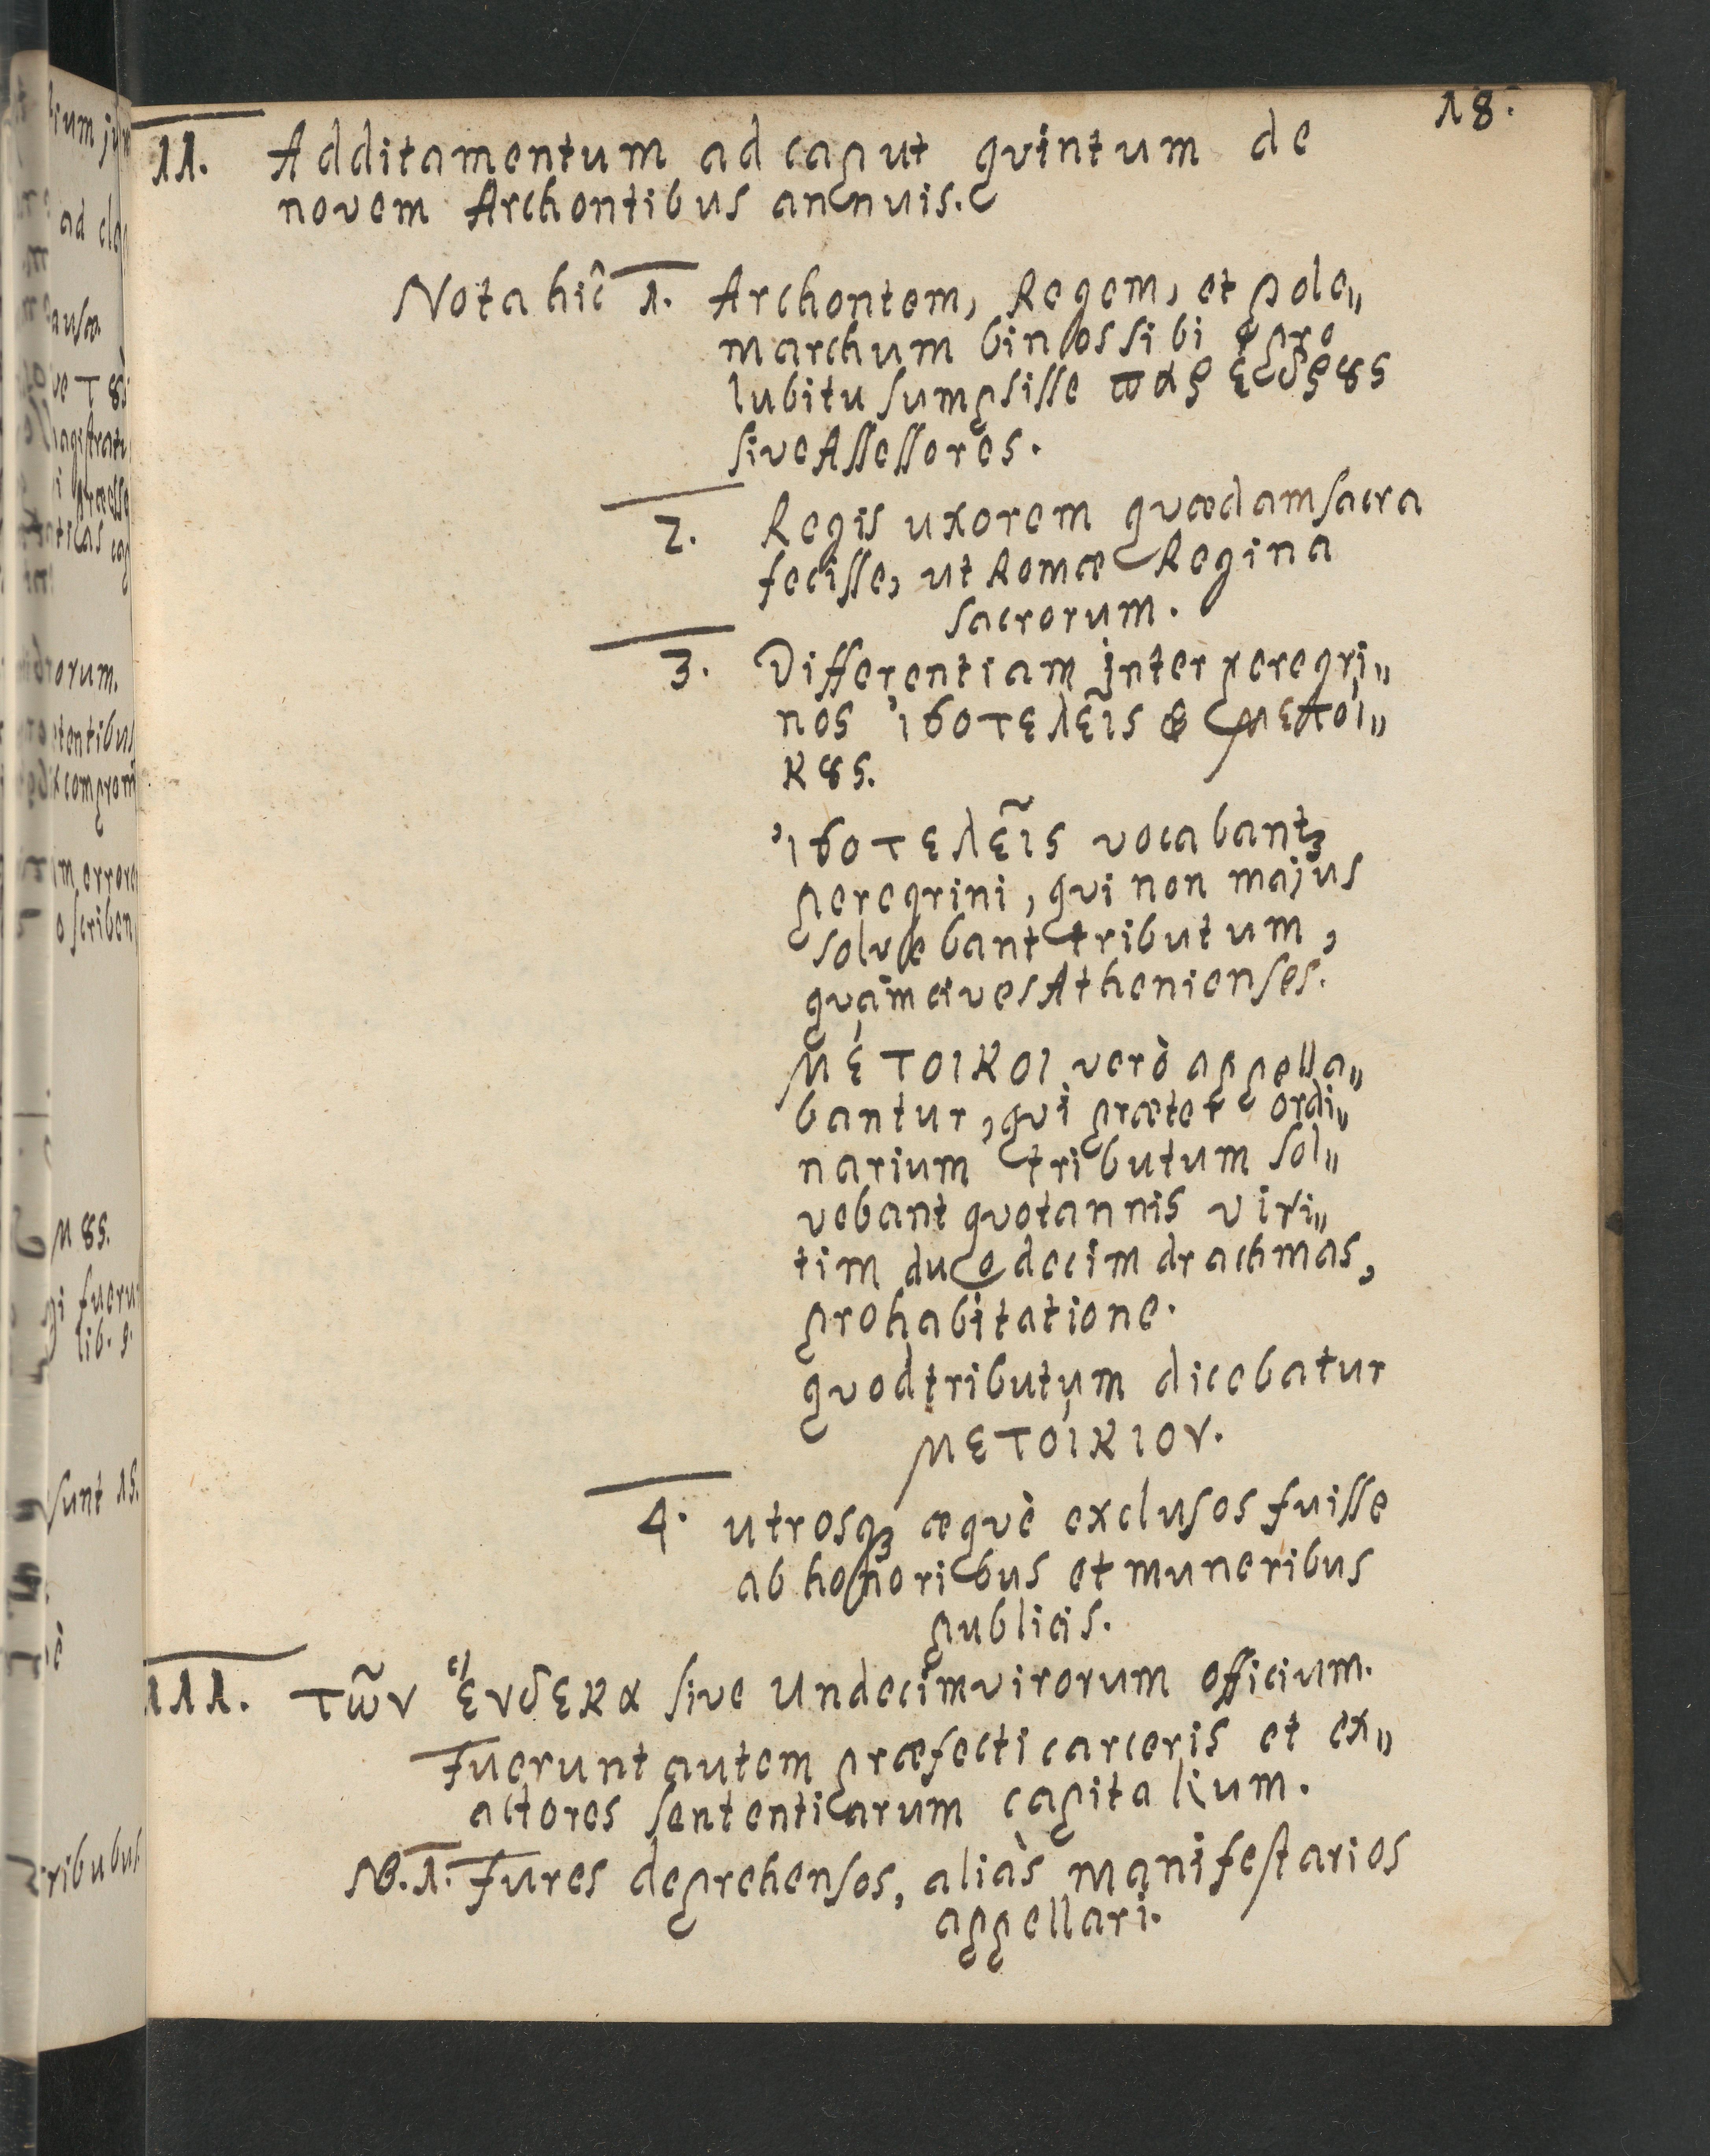 18.
II. Additamentum ad caput quintum de
novem Archontibus annuis.
Nota hîc 1. Archontem, Regem, et pole„
marchum binos sibi pro
lubitu sumpsisse παρέδρȣς
sive Assessores.
2. Regis uxorem quædam sacra
fecisse, ut Romæ Regina
sacrorum.
3. Differentiam inter peregri„
nos ἰσοτελεῖς & μετοί„
κȣς.
ἰσοτελεῖς vocabantꝫ
peregrini, qui non majus
solvebant tributum,
quàm cives Athenienses.
μέτοικοι verò appella„
bantur, qui præter ordi„
narium tributum sol„
vebant quotannis viri„
tim duodecim drachmas,
pro habitatione.
quod tributum dicebatur
μετοίκιον.
4. utrosqꝫ æquè exclusos fuisse
ab honoribus et muneribus
publicis.
III. τῶν ἕνδεκα sive Undecimvirorum officium.
Fuerunt autem præfecti carceris et ex„
actores sententiarum capitalium.
NB. 1. Fures deprehensos, aliàs manifestarios
appellari.